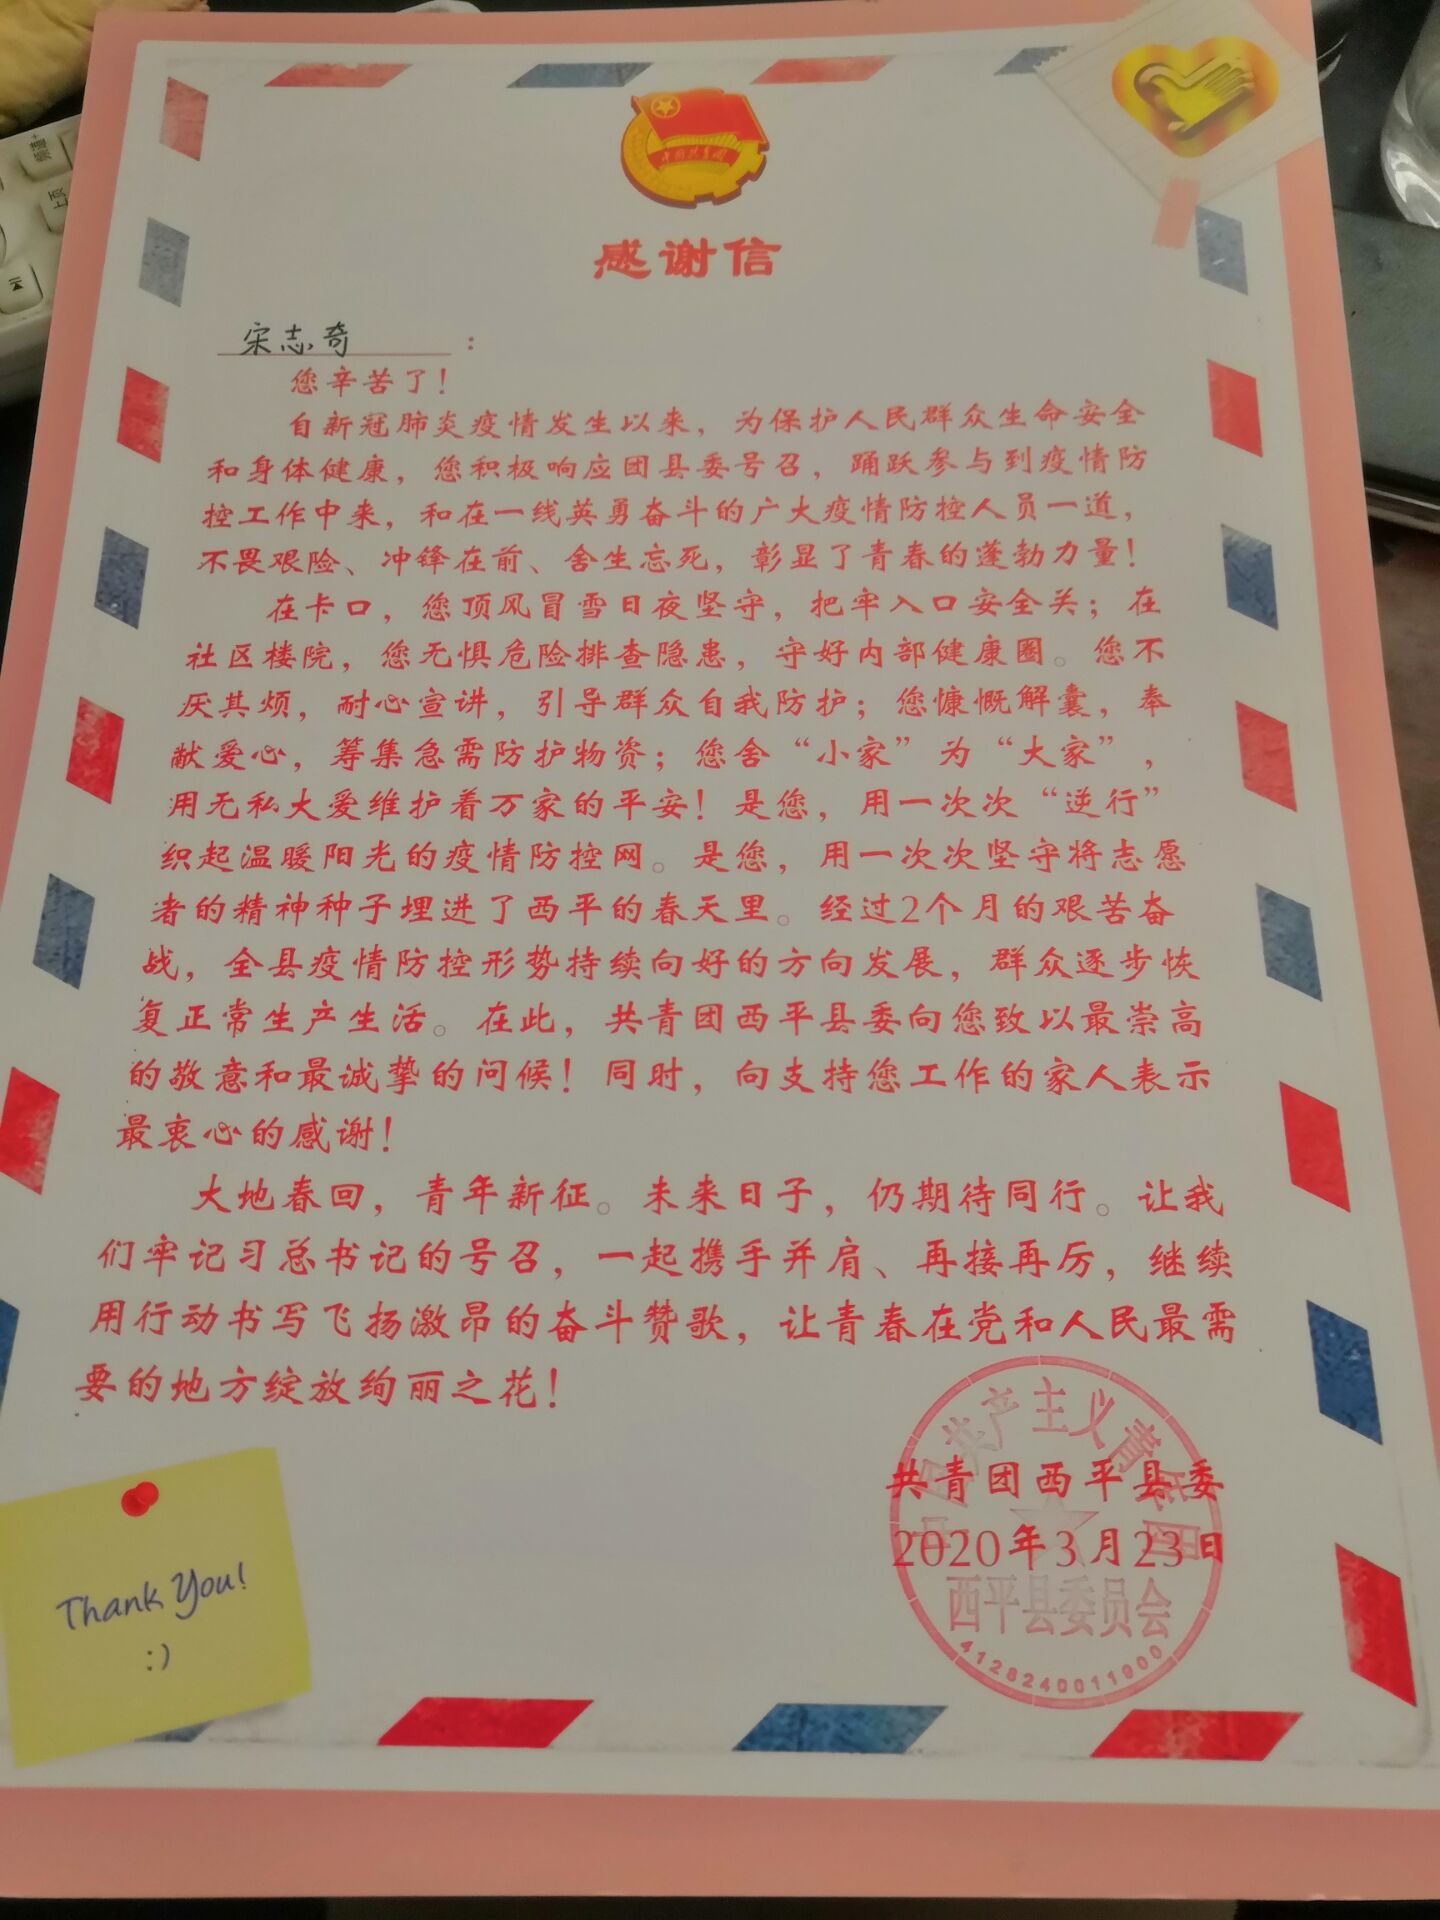 中国共青团
感谢信
宋志奇：
您辛苦了！
自新冠肺炎疫情发生以来，为保护人民群众生命安全
和身体健康，您积极响应团县委号召，踊跃参与到疫情防
控工作中来，和在一线英勇奋斗的广大疫情防控人员一道，
不畏艰险、冲锋在前、舍生忘死，彰显了青春的蓬勃力量！
在卡口，您顶风冒雪日夜坚守，把牢入口安全关；在
社区楼院，您无惧危险排查隐患，守好内部健康圈。您不
厌其烦，耐心宣讲，引导群众自我防护；您慷慨解囊，奉
献爱心，筹集急需防护物资；您舍“小家”为“大家”，
用无私大爱维护着万家的平安！是您，用一次次“逆行”
织起温暖阳光的疫情防控网。是您，用一次次坚守将志愿
者的精神种子埋进了西平的春天里。经过2个月的艰苦奋
战，全县疫情防控形势持续向好的方向发展，群众逐步恢
复正常生产生活。在此，共青团西平县委向您致以最崇高
的敬意和最诚挚的问候！同时，向支持您工作的家人表示
最衷心的感谢！
大地春回，青年新征。未来日子，仍期待同行。让我
们牢记习总书记的号召，一起携手并肩、再接再厉，继续
用行动书写飞扬激昂的奋斗赞歌，让青春在党和人民最需
要的地方绽放绚丽之花！
共青团西平县委
2020年3月23日
中国共产主义青年团
西平县委员会
4128240011900
Thank You!
:)
频道+
上页